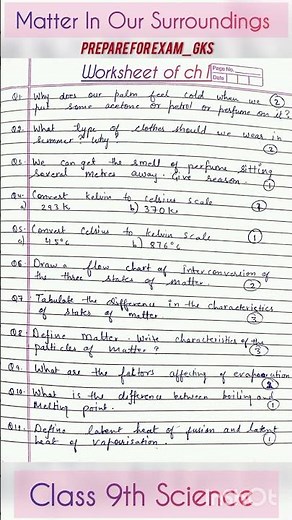 Matter In Our Surroundings
PREPAREFOREXAM_GKS
Worksheet of ch 1
Page No.
Date
Q1. Why does our palm feel cold when we
put some acetone or petrol or perfume on it? (2)
Q2. What type of clothes should we wear in
summer? Why? (2)
Q3. We can get the smell of perfume sitting
several metres away. Give reason. (1)
Q4. Convert kelvin to Celsius scale
a) 293K b) 370K
Q5. Convert Celsius to kelvin scale (1)
a) 45°c b) 876°c
Q6. Draw a flow chart of interconversion of
the three states of matter. (2)
Q7. Tabulate the difference in the characteristics
of states of matter (3)
Q8. Define Matter. Write characteristics of the
particles of matter? (3)
Q9. What are the fattors affecting of evaporation (2)
Q10. What is the difference between boiling and
Melting point. (1)
Q11. Define latent heat of fusion and latent
heat of vapourisation. (1)
Class 9th Science